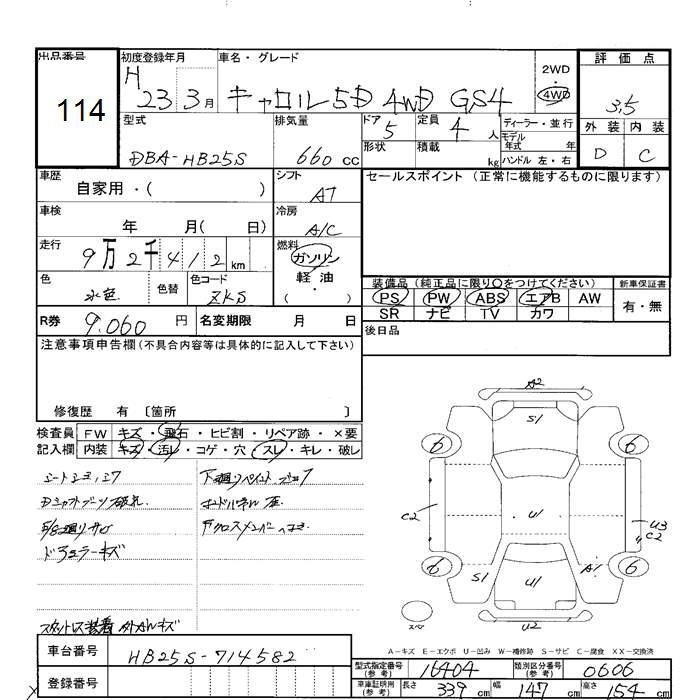 出品番号
114
初度登録年月
H 23 3月
車名・グレード
キャロル 5D 4WD GS4
2WD
4WD
評価点
3,5
外装 内装
D C
型式
DBA-HB25S
排気量
660 cc
ドア
5
形状
定員
4 人
積載
kg
ディーラー・並行
モデル
年式 年
ハンドル 左・右
車歴
自家用・( )
シフト
AT
セールスポイント (正常に機能するものに限ります)
車検
年 月( 日)
冷房
A/C
走行
9万2千412km
燃料
ガソリン
軽油
( ・ )
色
水色
色替
色コード
ZKS
装備品(純正品に限り○をつけてください)
新車保証書
PS PW ABS エアB AW
有・無
SR ナビ TV カワ
R券
9,060 円
名変期限 月 日
後日品
注意事項申告欄(不具合内容等は具体的に記入して下さい)
修復歴 有 〔箇所 〕
検査員 FW キズ・飛石・ヒビ割・リペア跡・×要
記入欄 内装 キズ・汚レ・コゲ・穴・スレ・キレ・破レ
シートシミ、コゲ
下廻りペイント
Dシャフトブーツ破れ
ドアミラーキズ
スタットレス装着
A2
S1
6 6
C2
U1
U3
C2
6 6
S1
U1
A1
U2
スペア
A-キズ E-エクボ U-凹み W-補修跡 S-サビ C-腐食 XX-交換済
車台番号
HB25S-714582
登録番号
型式指定番号
(参考)
16404
類別区分番号
(参考)
0606
車庫証明用
(参考)
長さ 339cm 幅 147cm 高さ 154cm